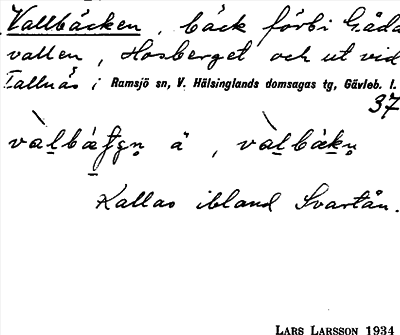 Vallbäcken, bäck förbi Gåda
vallen, Hosberget och ut vid
Tallnäs i Ramsjö sn, V. Hälsinglands domsagas tg, Gävleb. l.
37
Kallas ibland Svartån.
LARS LARSSON 1934